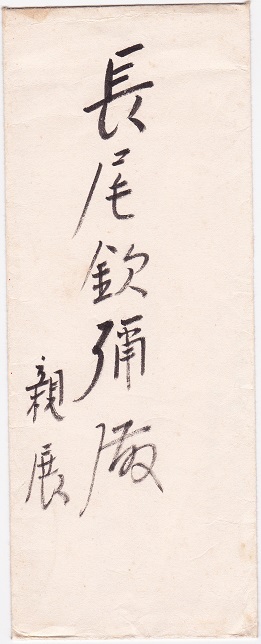 長尾欽彌殿
親展